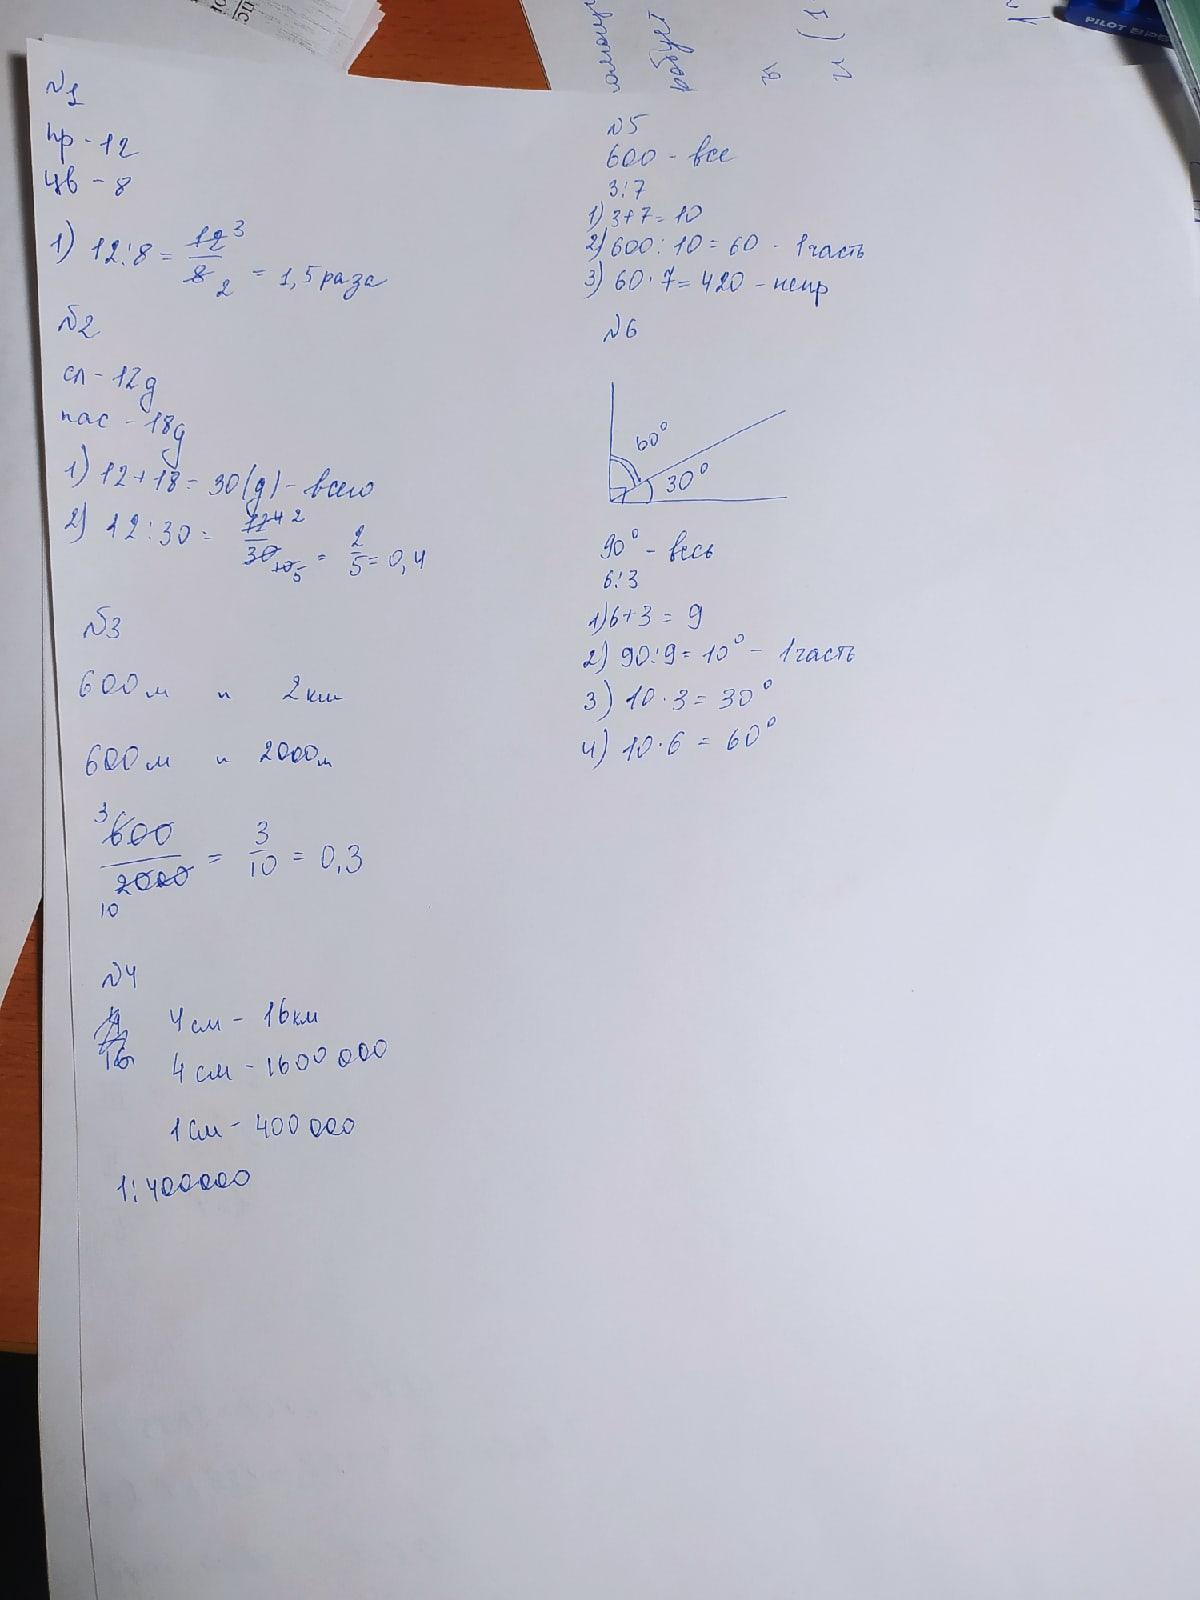 PILOT
№1
пр - 12
цв - 8
1) 12:8 = 12 3 / 8 2 = 1,5 раза
№2
сл - 12д
пас - 18д
1) 12+18 = 30(д) - всего
2) 12:30 = 12 4 2 / 30 10 5 = 2/5 = 0,4
№3
600м и 2км
600м и 2000м
3 600 / 2000 10 = 3/10 = 0,3
№4
16
4см - 16км
4см - 1600 000
1см - 400 000
1:400000
№5
600 - все
3:7
1) 3+7 = 10
2) 600:10 = 60 - 1часть
3) 60·7 = 420 - непр
№6
60°
30°
90° - весь
6:3
1) 6+3 = 9
2) 90:9 = 10° - 1часть
3) 10·3 = 30°
4) 10·6 = 60°